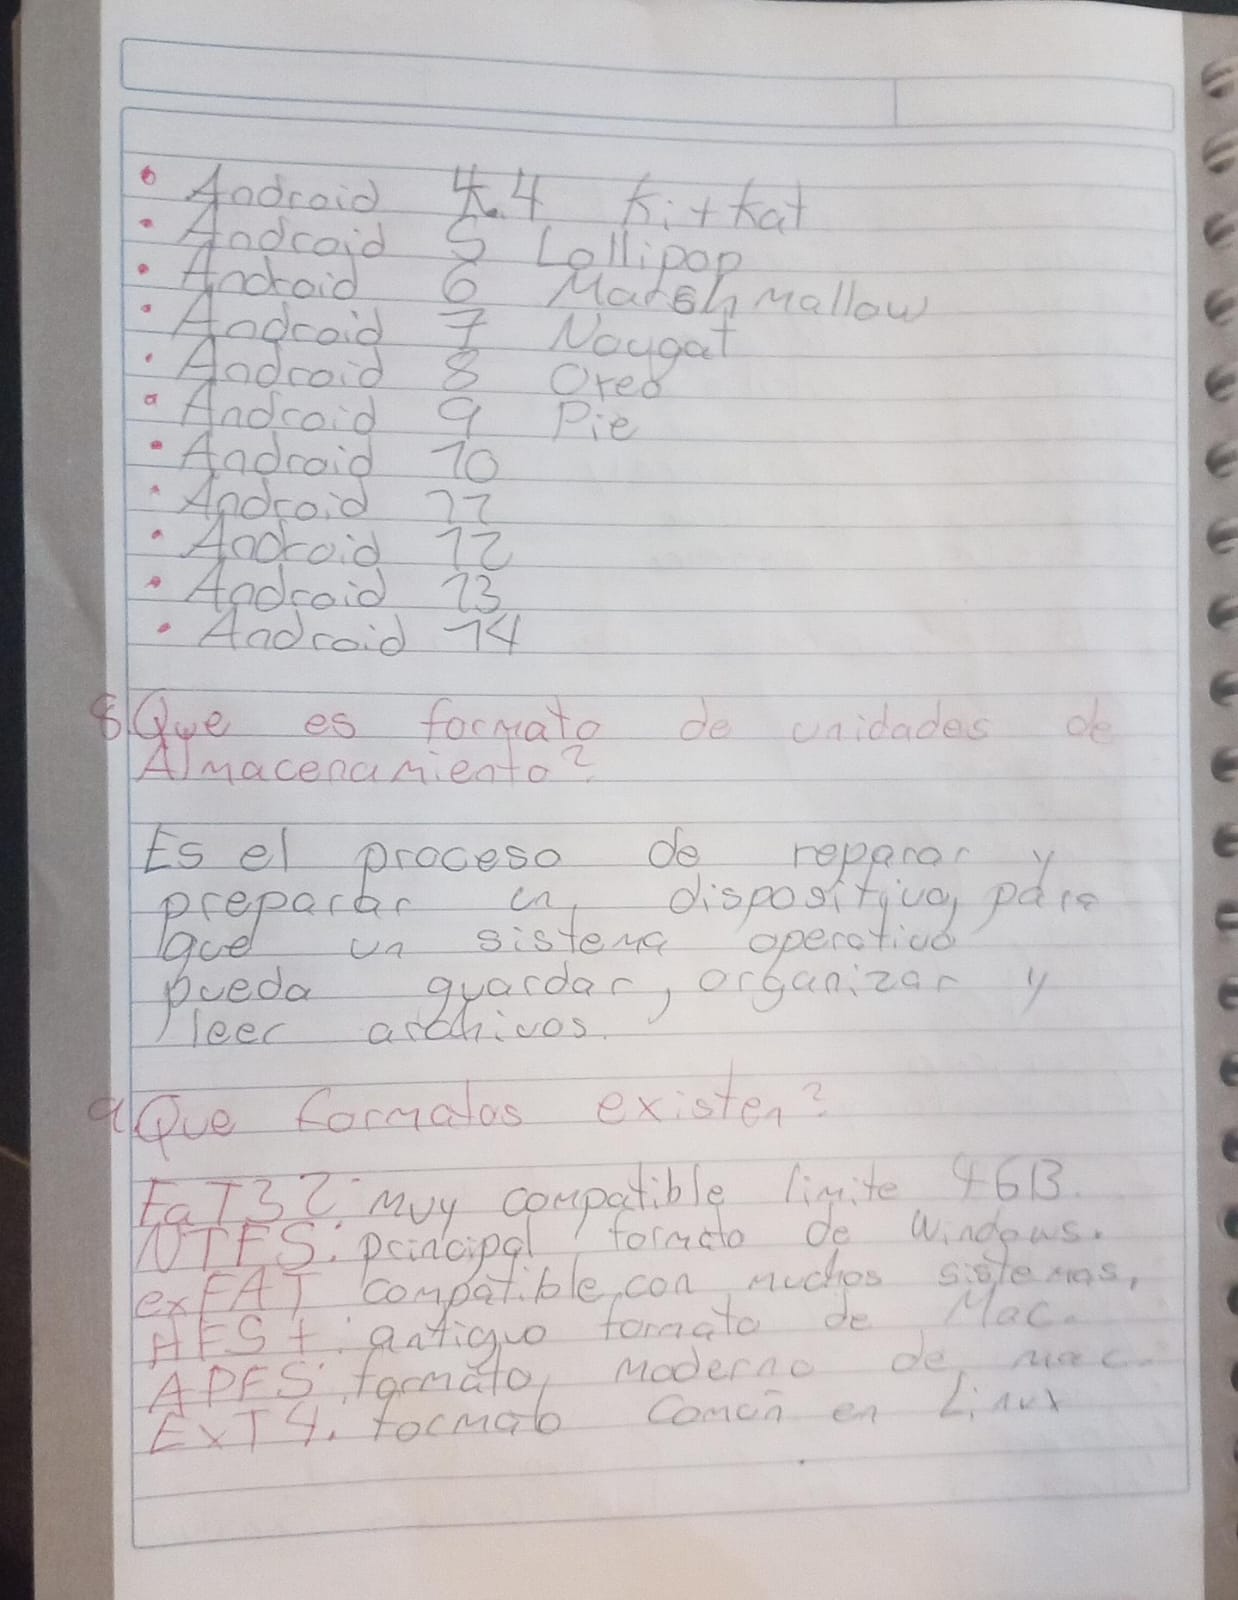 • Android 4.4 KitKat
• Android 5 Lollipop
• Android 6 Marshmallow
• Android 7 Nougat
• Android 8 Oreo
• Android 9 Pie
• Android 10
• Android 11
• Android 12
• Android 13
• Android 14
8 Que es formato de unidades de
Almacenamiento?
Es el proceso de reparar y
preparar un dispositivo, para
que un sistema operativo
pueda guardar, organizar y
leer archivos.
9 Que formatos existen?
FaT32: Muy compatible limite 4GB.
NTFS: principal formato de Windows.
exFAT compatible con muchos sistemas,
HFS+: antiguo formato de Mac.
APFS: formato moderno de mac.
ExT4. formato Comun en Linux